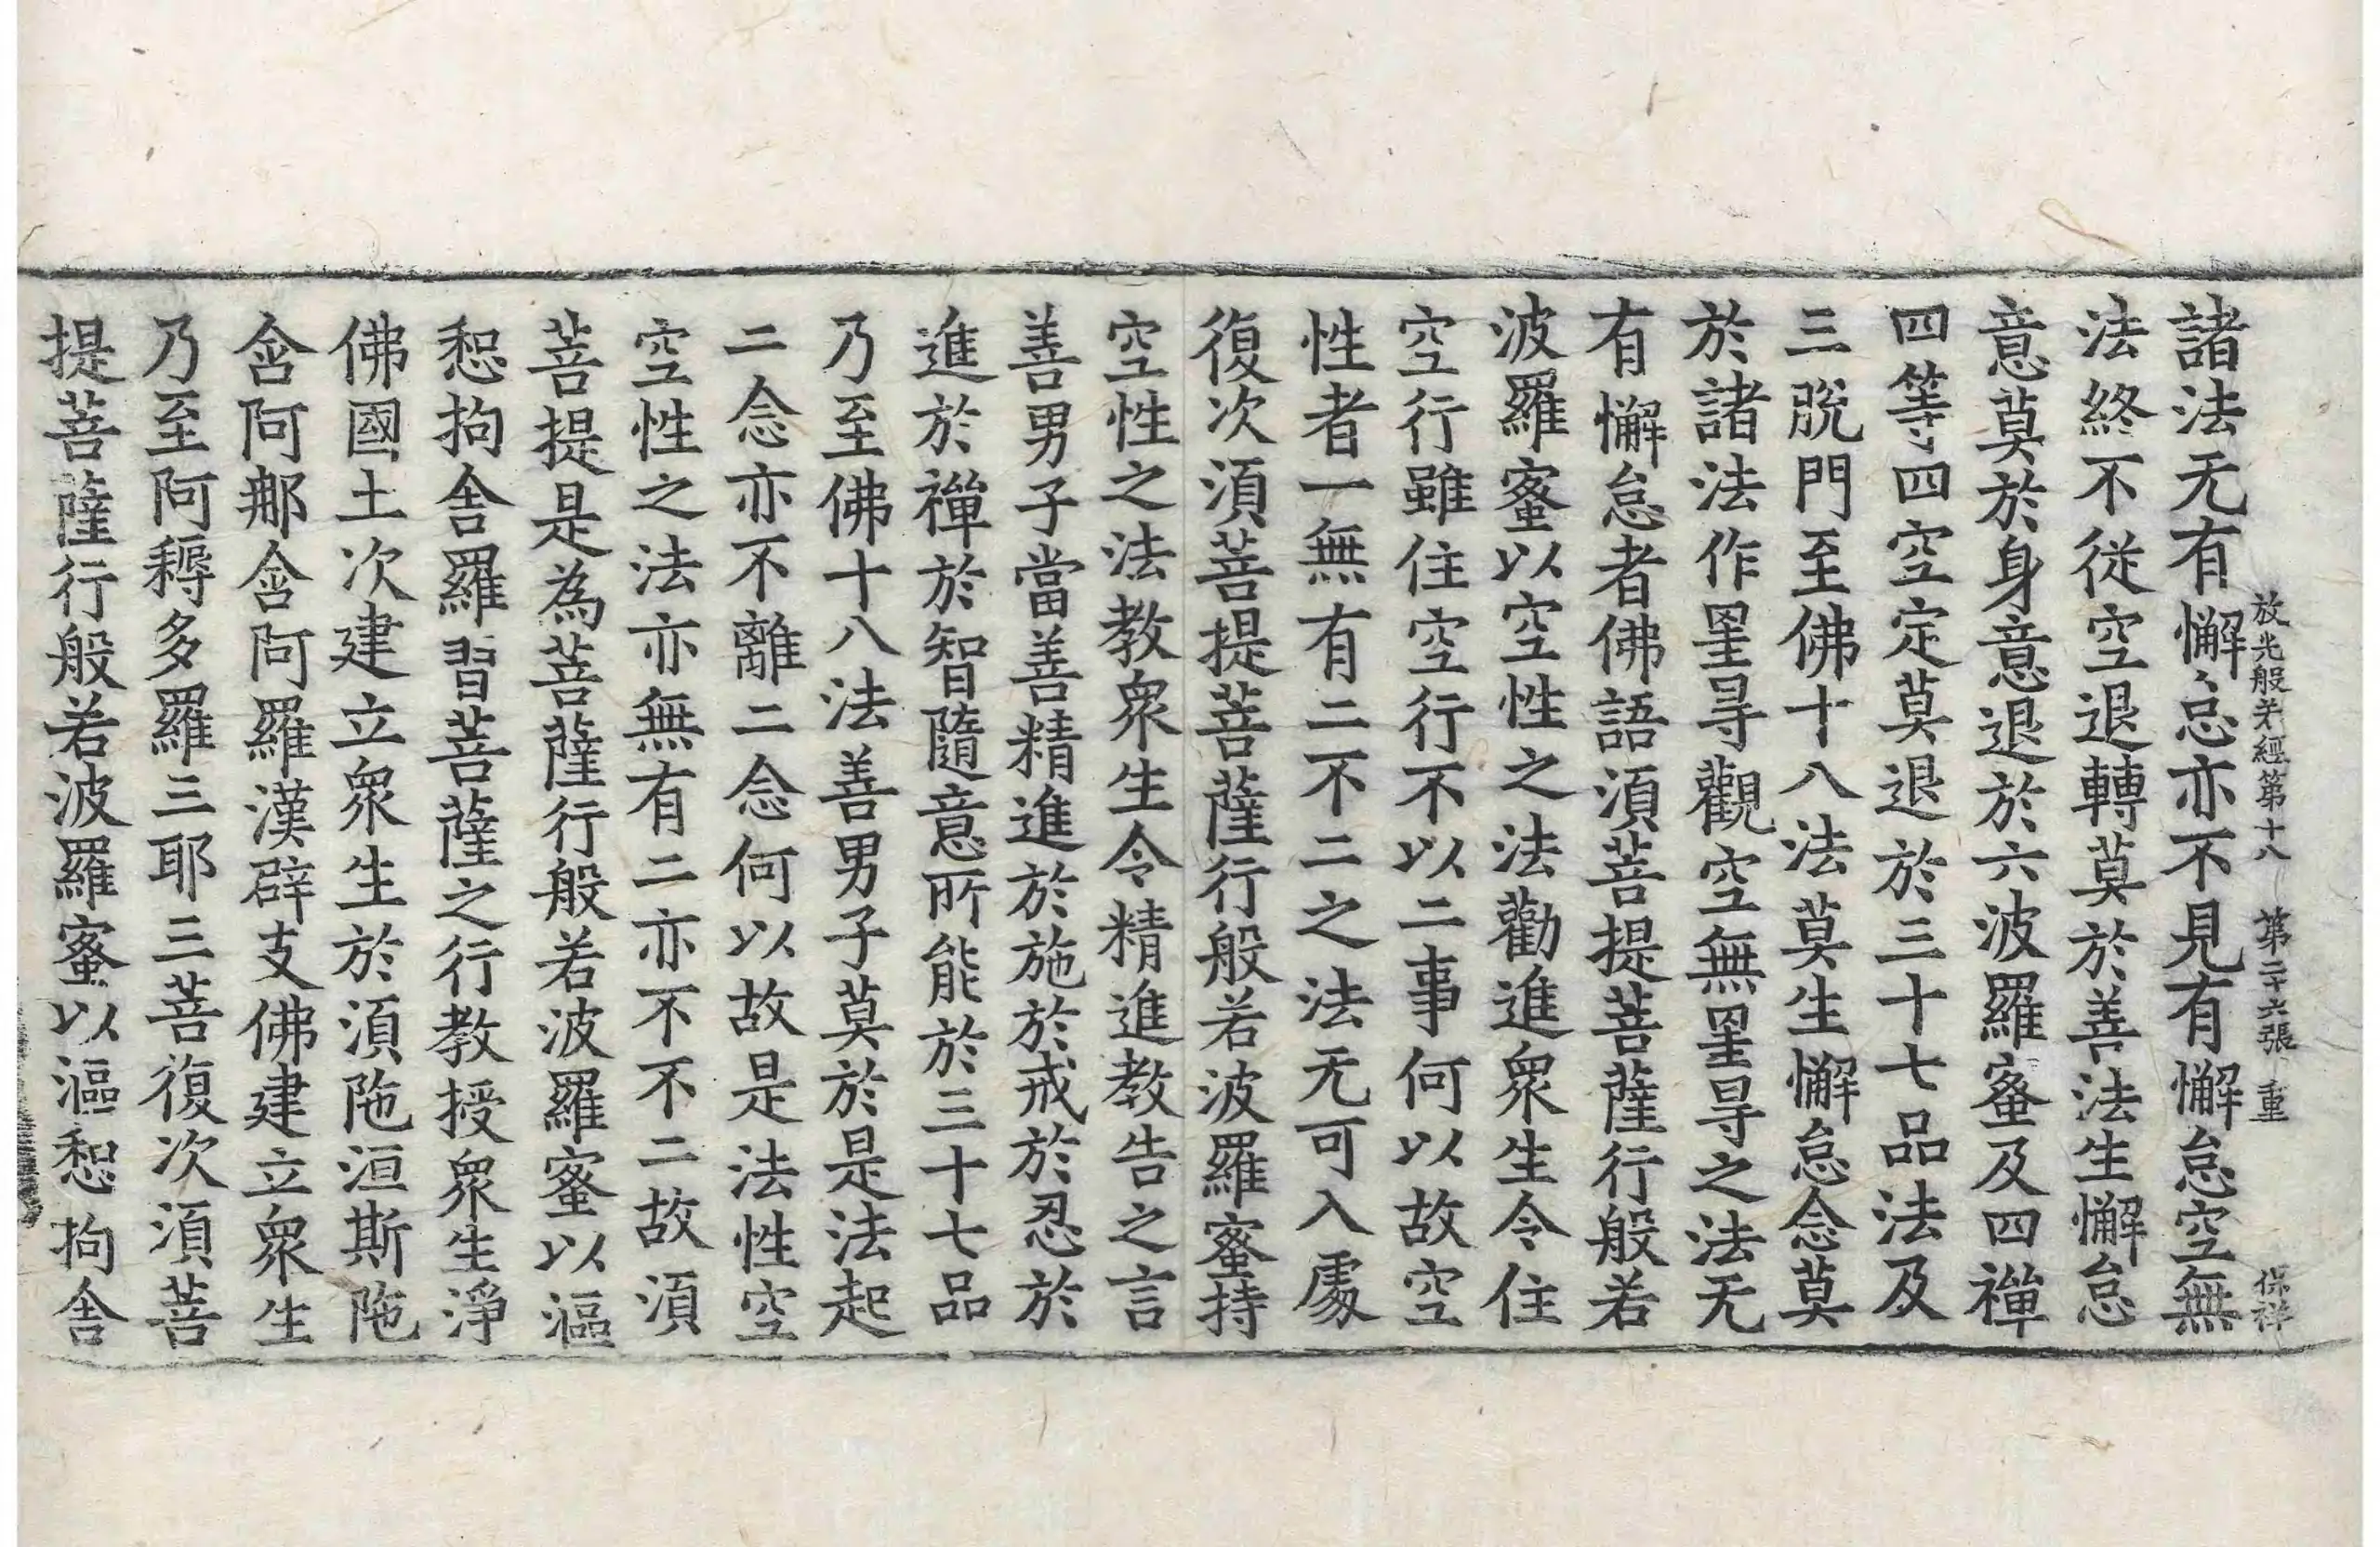 放光般若經第十八 第二十六張 重 保祥
諸法无有懈怠亦不見有懈怠空無
法終不從空退轉莫於善法生懈怠
意莫於身意退於六波羅蜜及四禪
四等四空定莫退於三十七品法及
三脫門至佛十八法莫生懈怠念莫
於諸法作罣㝵觀空無罣㝵之法无
有懈怠者佛語須菩提菩薩行般若
波羅蜜以空性之法勸進衆生令住
空行雖住空行不以二事何以故空
性者一無有二不二之法无可入處
復次須菩提菩薩行般若波羅蜜持
空性之法教衆生令精進教告之言
善男子當善精進於施於戒於忍於
進於禪於智隨意所能於三十七品
乃至佛十八法善男子莫於是法起
二念亦不離二念何以故是法性空
空性之法亦無有二亦不不二故須
菩提是為菩薩行般若波羅蜜以漚
惒拘舍羅習菩薩之行教授衆生淨
佛國土次建立衆生於須陁洹斯陁
含阿那含阿羅漢辟支佛建立衆生
乃至阿耨多羅三耶三菩復次須菩
提菩薩行般若波羅蜜以漚惒拘舍